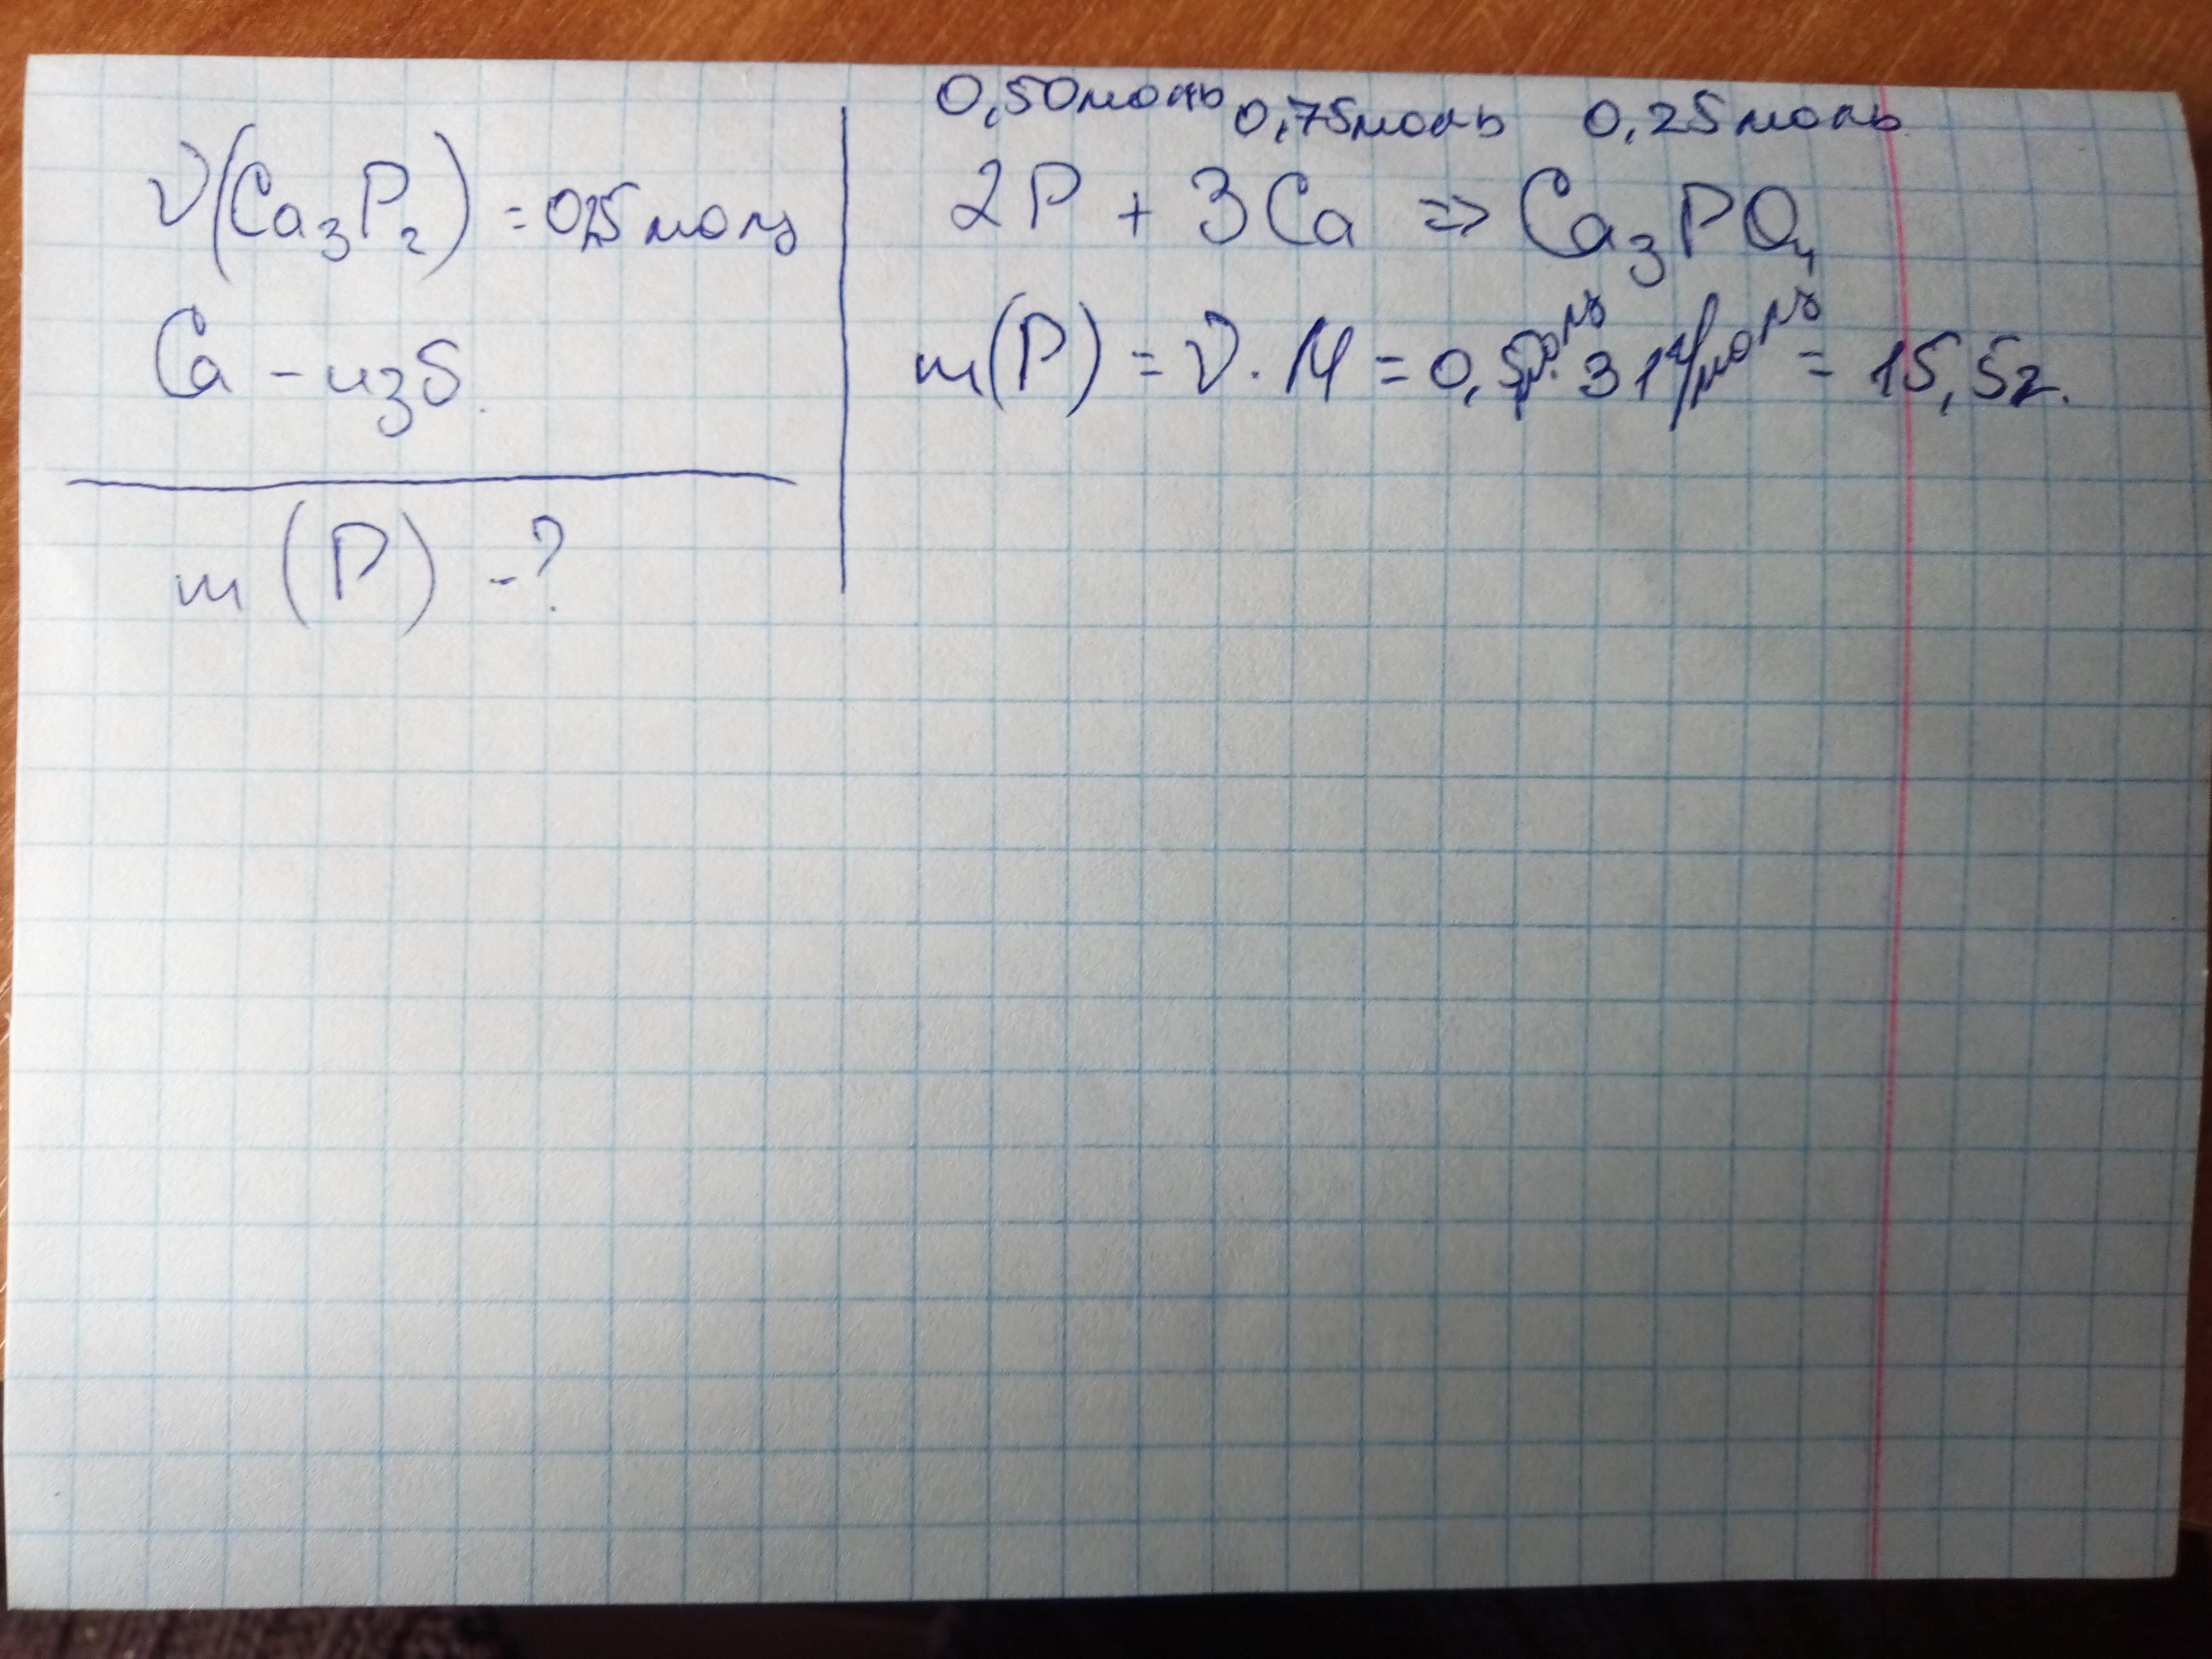 ν(Ca₃P₂) = 0,25 моль
Ca – изб.
m(P) – ?
0,50моль 0,75моль 0,25моль
2P + 3Ca => Ca₃PO₄
m(P) = ν · M = 0,5моль · 31г/моль = 15,5г.